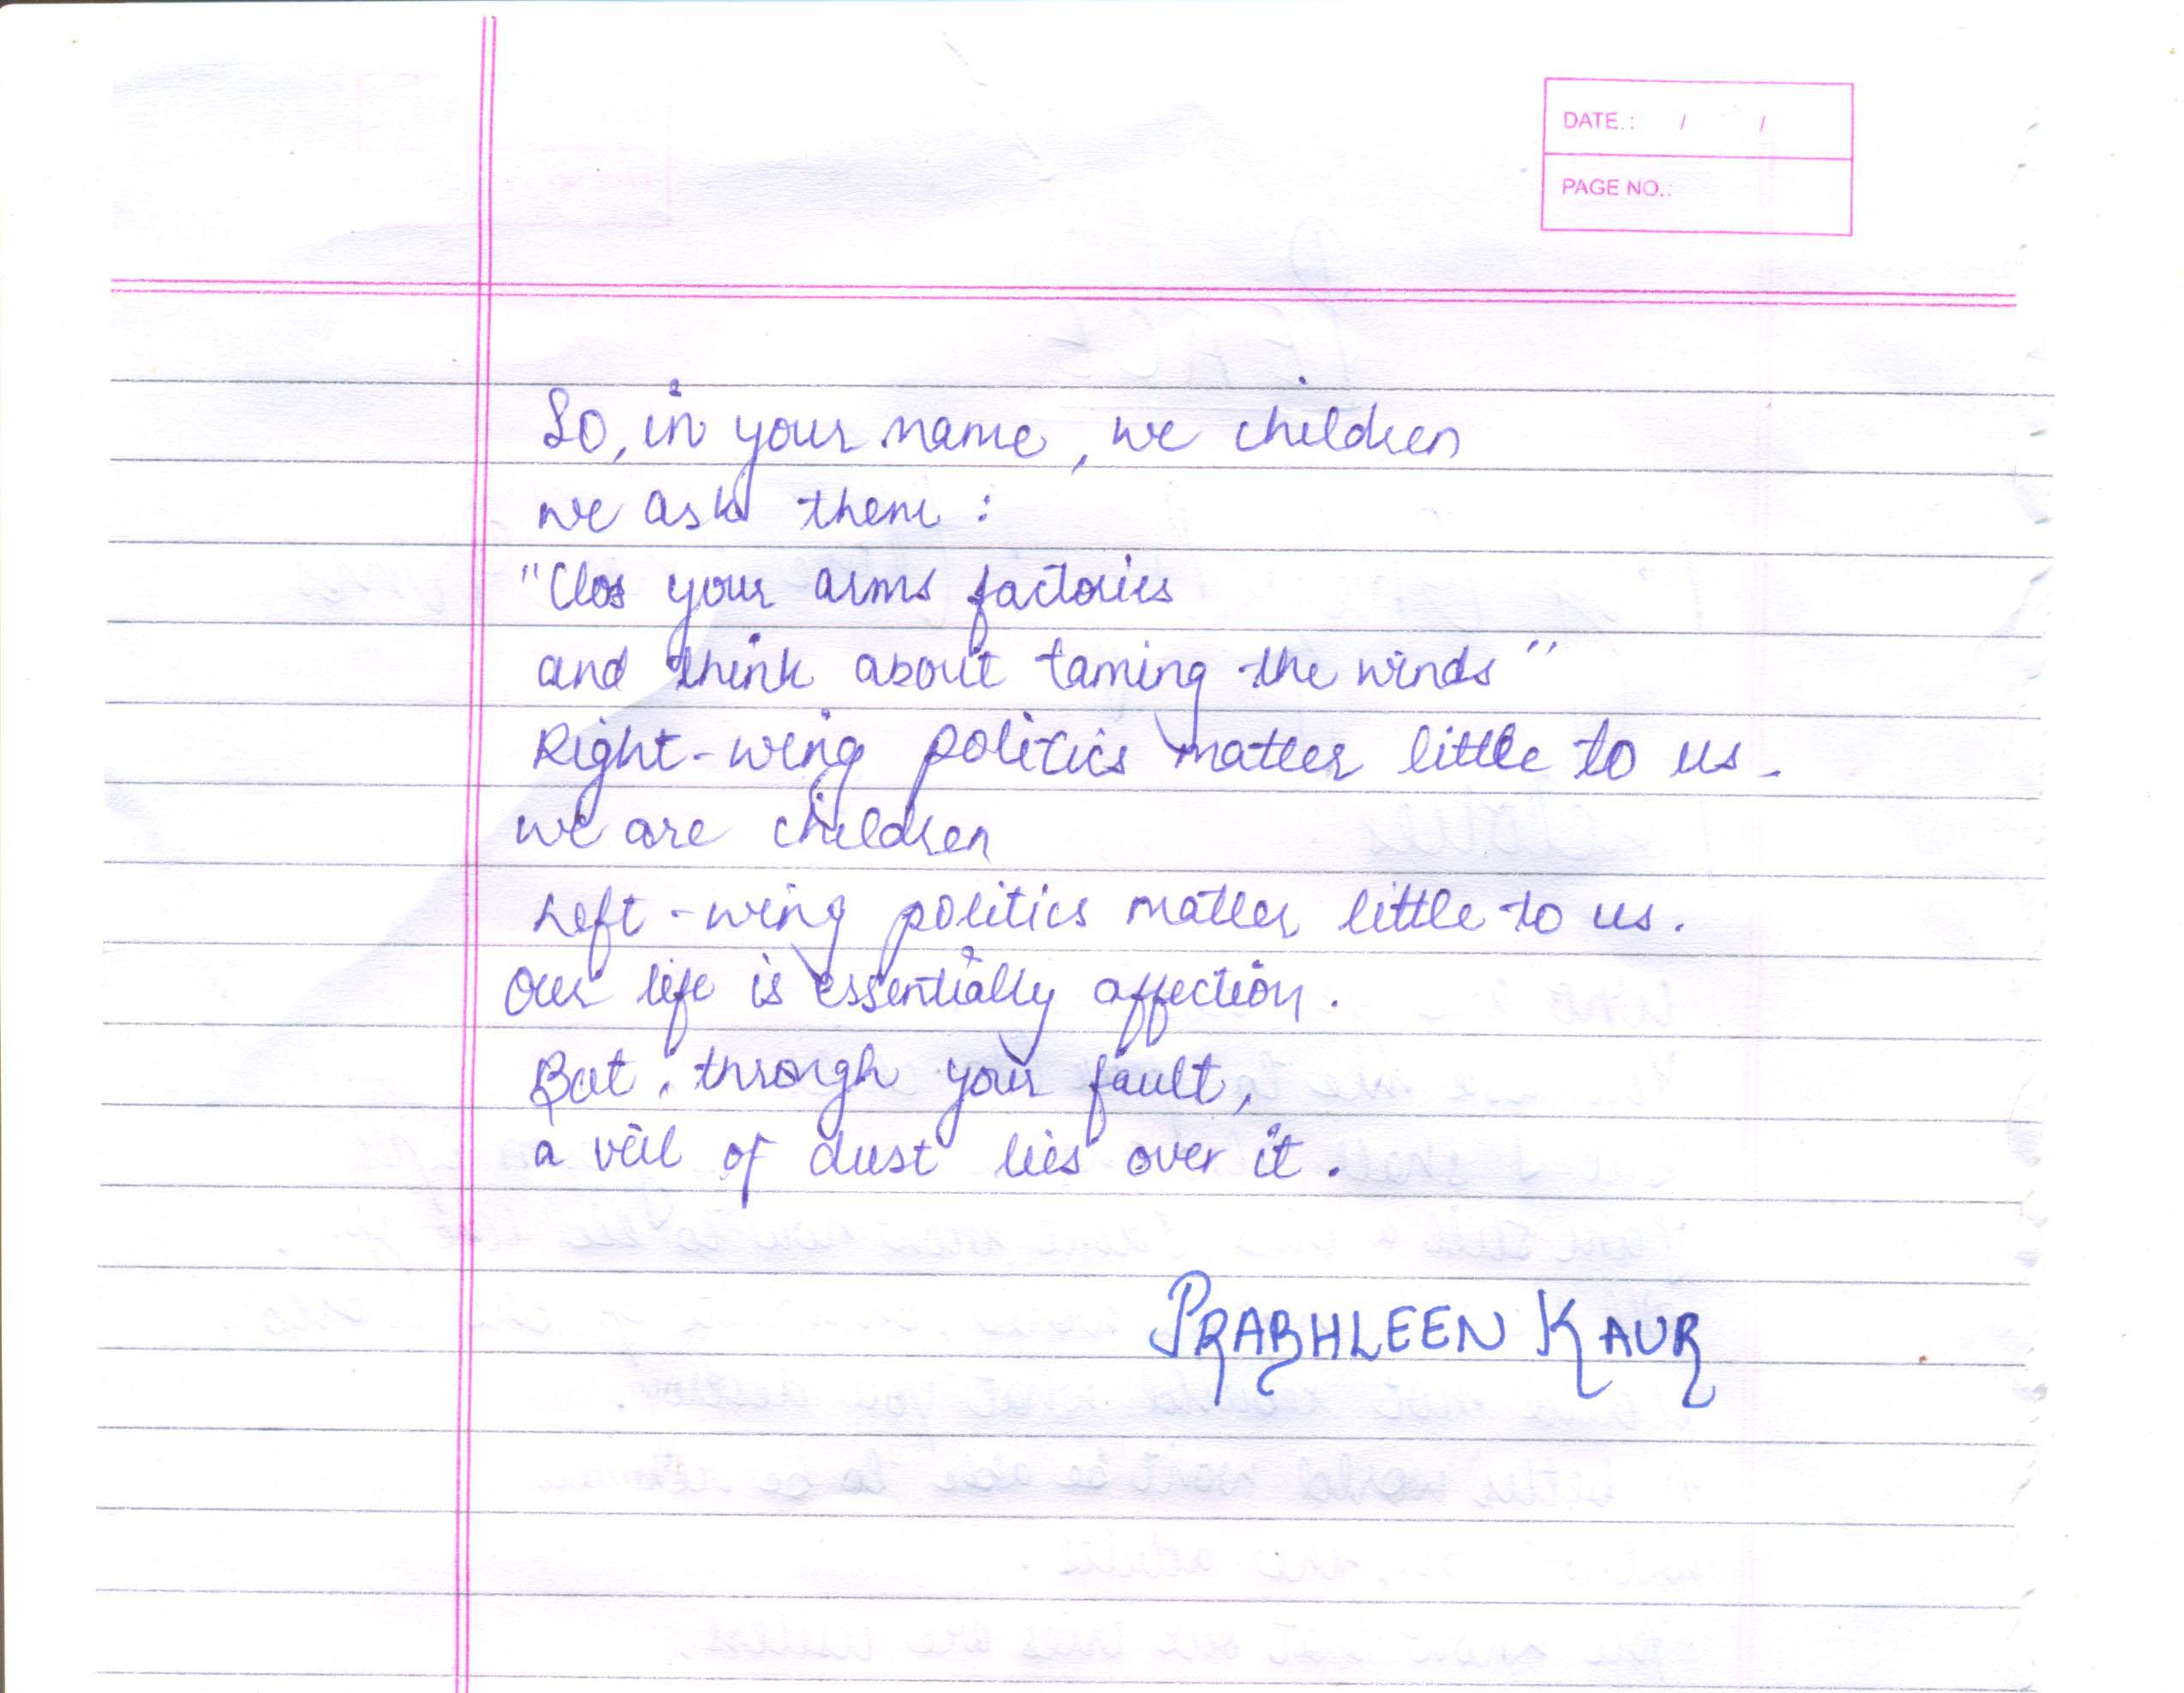 DATE.: / /
PAGE NO.:
So, in your name, we children
we ask them :
"Clos your arms factories
and think about taming the winds"
Right-wing politics matter little to us.
we are children
Left-wing politics matter little to us.
Our life is essentially affection.
But, through your fault,
a veil of dust lies over it.
PRABHLEEN KAUR